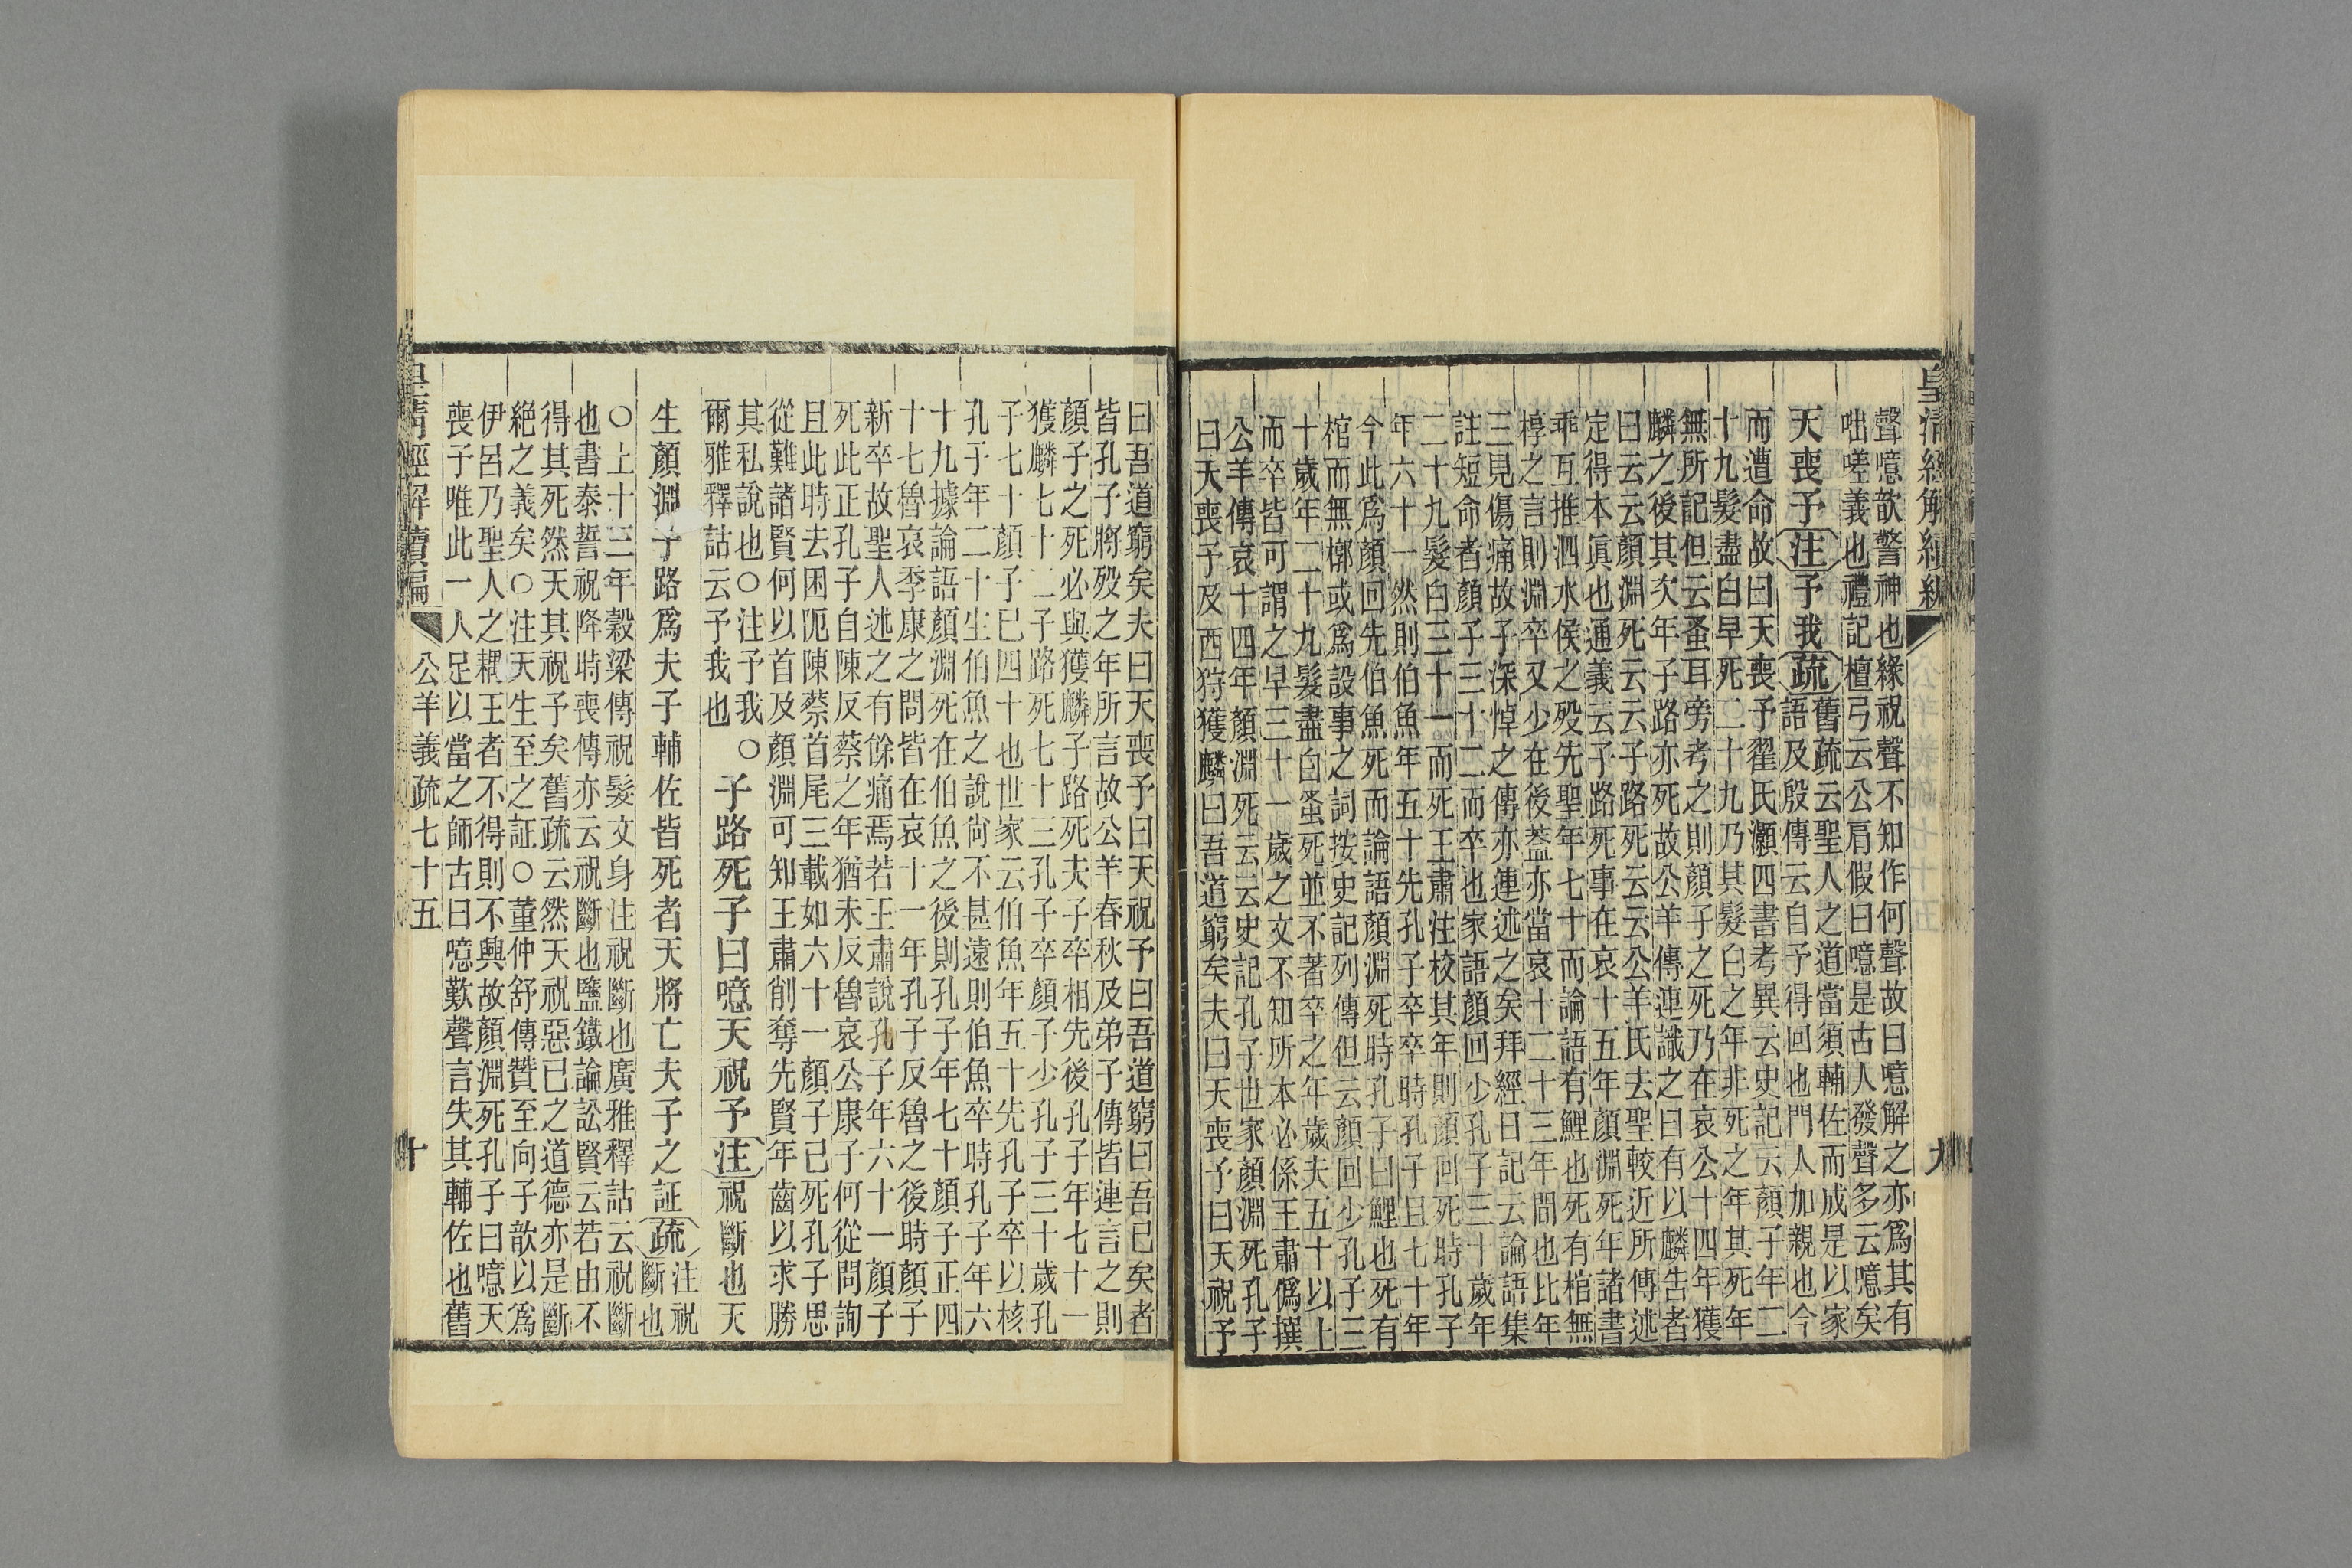 皇清經解續編
聲噫歆警神也緣祝聲不知作何聲故曰噫解之亦爲其有
咄嗟義也禮記檀弓云公肩假曰噫是古人發聲多云噫矣
天喪予注予我疏舊疏云聖人之道當須輔佐而成是以家
語及殷傳云自予得回也門人加親也今
而遭命故曰天喪予翟氏灝四書考異云史記云顏子年二
十九髮盡白早死二十九乃其髮白之年非死之年其死年
無所記但云蚤耳旁考之則顏子之死乃在哀公十四年獲
麟之後其次年子路亦死故公羊傳連識之曰有以麟告者
曰云云顏淵死云云子路死云云公羊氏去聖較近所傳述
定得本眞也通義云子路死事在哀十五年顏淵死年諸書
乖互推泗水侯之歿先聖年七十而論語有鯉也死有棺無
椁之言則淵卒又少在後葢亦當哀十二十三年間也比年
三見傷痛故子深悼之傳亦連述之矣拜經日記云論語集
註短命者顏子三十二而卒也家語顏回少孔子三十歲年
二十九髮白三十一而死王肅注校其年則顏回死時孔子
年六十一然則伯魚年五十先孔子卒卒時孔子且七十年
今此爲顏回先伯魚死而論語顏淵死時孔子曰鯉也死有
棺而無槨或爲設事之詞按史記列傳但云顏回少孔子三
十歲年二十九髮盡白蚤死並不著卒之年歲夫五十以上
而卒皆可謂之早三十一歲之文不知所本必係王肅僞撰
公羊傳哀十四年顏淵死云云史記孔子世家顏淵死孔子
曰天喪予及西狩獲麟曰吾道窮矣夫曰天喪予曰天祝予
曰吾道窮矣夫曰天喪予曰天祝予曰吾道窮曰吾已矣者
皆孔子將歿之年所言故公羊春秋及弟子傳皆連言之則
顏子之死必與獲麟子路死夫子卒相先後孔子年七十一
獲麟七十二子路死七十三孔子卒顏子少孔子三十歲孔
子七十顏子已四十也世家云伯魚年五十先孔子卒以核
孔于年二十生伯魚之說尙不甚遠則伯魚卒時孔子年六
十九據論語顏淵死在伯魚之後則孔子年七十顏子正四
十七魯哀季康之問皆在哀十一年孔子反魯之後時顏子
新卒故聖人述之有餘痛焉若王肅說孔子年六十一顏子
死此正孔子自陳反蔡之年猶未反魯哀公康子何從問詢
且此時去困阨陳蔡首尾三載如六十一顏子已死孔子思
從難諸賢何以首及顏淵可知王肅削奪先賢年齒以求勝
其私說也○注予我○
爾雅釋詁云予我也
子路死子曰噫天祝予注祝斷也天
生顏淵子路爲夫子輔佐皆死者天將亡夫子之証疏注祝
斷也
○上十三年穀梁傳祝髮文身注祝斷也廣雅釋詁云祝斷
也書泰誓祝降時喪傳亦云祝斷也鹽鐵論訟賢云若由不
得其死然天其祝予矣舊疏云然天祝惡已之道德亦是斷
絕之義矣○注天生至之証○董仲舒傳贊至向子歆以爲
伊呂乃聖人之耦王者不得則不興故顏淵死孔子曰噫天
喪于唯此一人足以當之師古曰噫歎聲言失其輔佐也舊
皇清經解續編 公羊義疏七十五 十